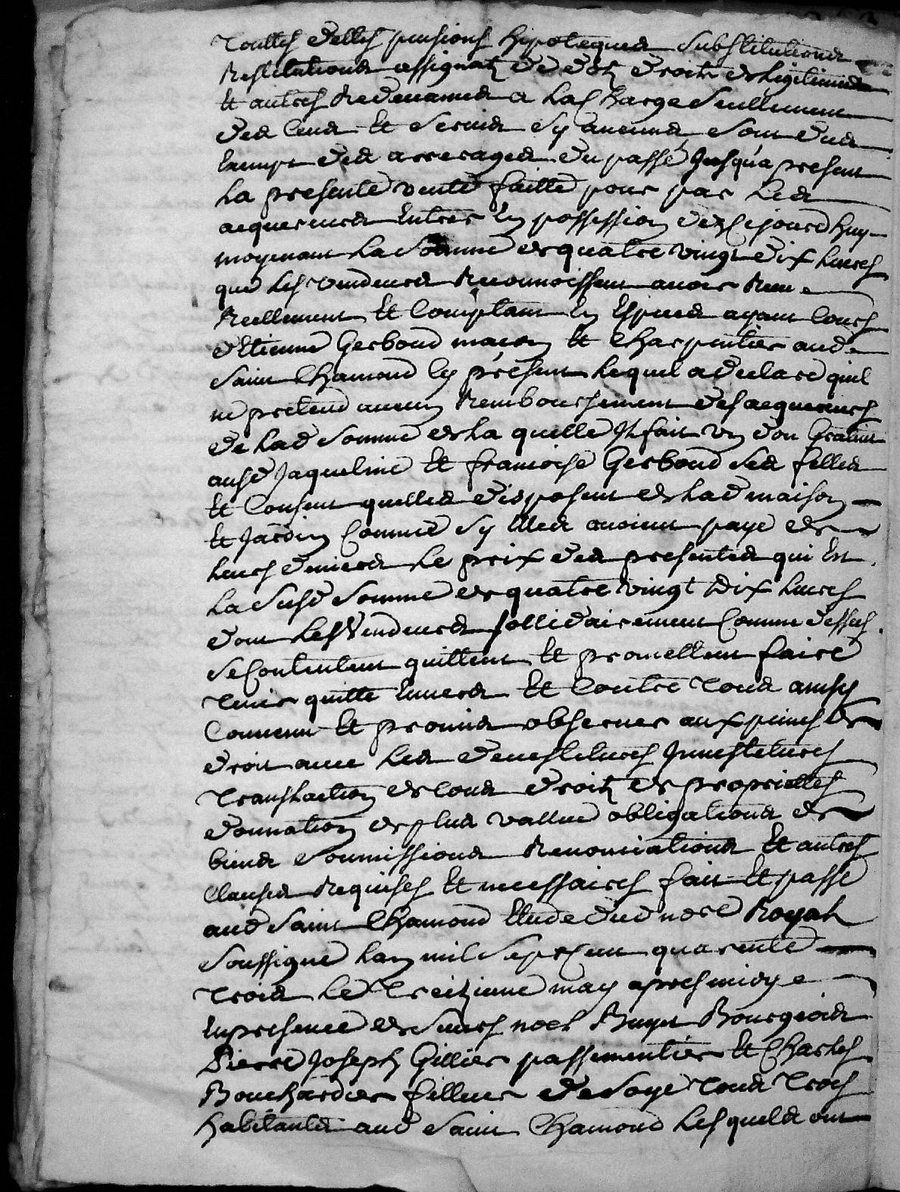 touttes debtes pensions hipoteques substitutions
Restitutions assignatz de dotz droitz de legitimes
Et autres Redevances a la charge seullement
des cens Et servis sy aucuns sont dus
Exempt des arrerages du passé Jusqu'a present
La presente vente faitte pour par Les
acquereurs Entrer En possession dez cejourdhuy
moyenant La somme de quatre vingt dix Livres
que Les vendeurs Reconnoissent avoir Receu
Reellement Et comptant En Especes ayant cours
d'Etienne Gerboud masson Et charpentier aud
Saint Chamond Cy présent Lequel a declaré qu'il
ne pretend aucun Remboursement des acquereurs
de Lad somme de La quelle Il fait un don Gratuit
ausd Jaqueline Et francoise Gerboud ses filles
Et Consent quelles disposent de Lad maison
Et Jardin Comme sy Elles avoient payé de
Leurs deniers Le prix des presentes qui Est
La susd somme de quatre vingt Dix Livres
dont Les Vendeurs sollidairement Comme dessus
se Contentent quittent Et promettent faire
Tenir quitte Envers Et Contre Tous ainsy
Convenu Et promis observer aux peines de
droit avec Les devestitures Investitures
Translaction de tous droitz de proprietés
donnation de plus vallue obligations de
biens soumissions Renonciations Et autres
Clauses Requises Et necessaires fait Et passé
aud Saint Chamond Etude dud nore Royal
Soussigné Lan mil sept cent quarente
Trois Le Treizieme may apres midy
En presence de sieurs noel Bourgeois
Pierre Joseph Gillier passementier Et Charles
Bouchardier filleur de soye Tous Trois
habitants aud Saint Chamond Lesquels ont